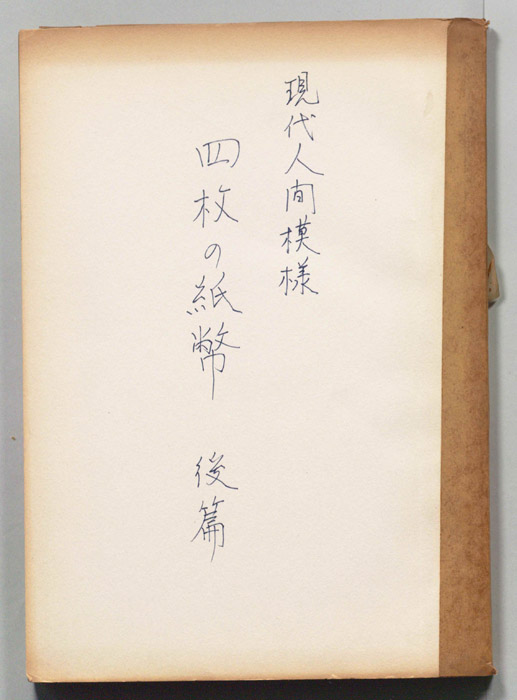 現代人間模様
四枚の紙幣 後篇